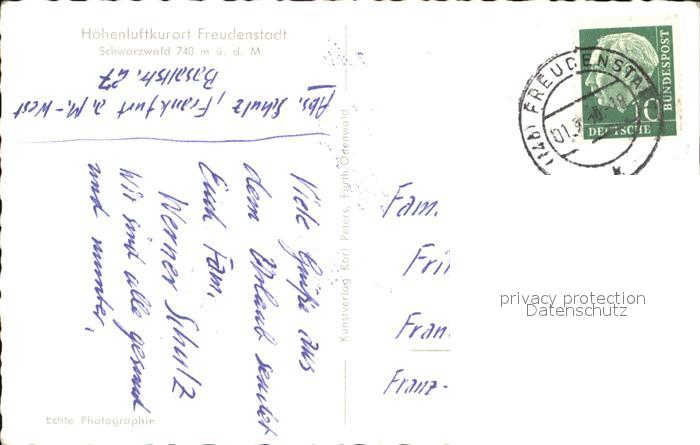 Höhenluftkurort Freudenstadt
Schwarzwald 740 m ü. d. M.
Abs. Schulz, Frankfurt a. M.-West
Basaltstr. 27
Viele Grüße aus
dem Urlaub sendet
Euch Fam.
Werner Schulz
Wir sind alle gesund
und munter.
Echte Photographie
Kunstverlag Karl Peters, Fürth/Odenwald
Fam.
Fran
Franz-
privacy protection
Datenschutz
(14b) FREUDENSTA
10
DEUTSCHE
BUNDESPOST